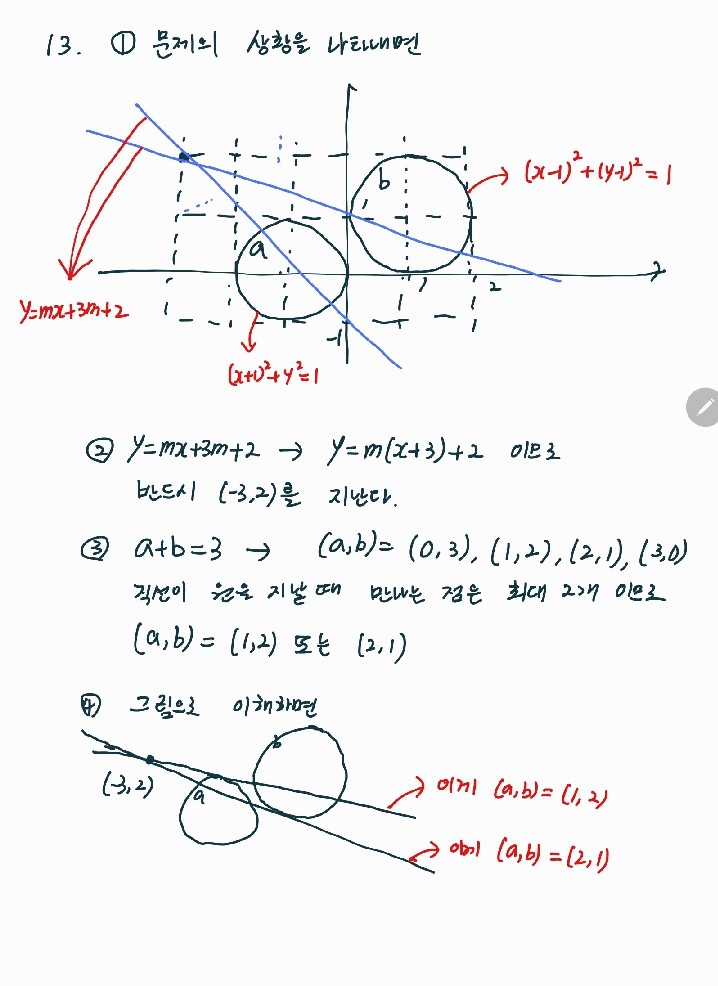 13. ① 문제의 상황을 나타내면
b
(x-1)²+(y-1)²=1
a
1
2
y=mx+3m+2
-1
(x+1)²+y²=1
② y=mx+3m+2 → y=m(x+3)+2 이므로
반드시 (-3,2)를 지난다.
③ a+b=3 → (a,b)= (0,3), (1,2), (2,1), (3,0)
직선이 원을 지날 때 만나는 점은 최대 2개 이므로
(a,b)= (1,2) 또는 (2,1)
④ 그림으로 이해하면
b
(-3,2)
a
이게 (a,b)=(1,2)
이게 (a,b)=(2,1)